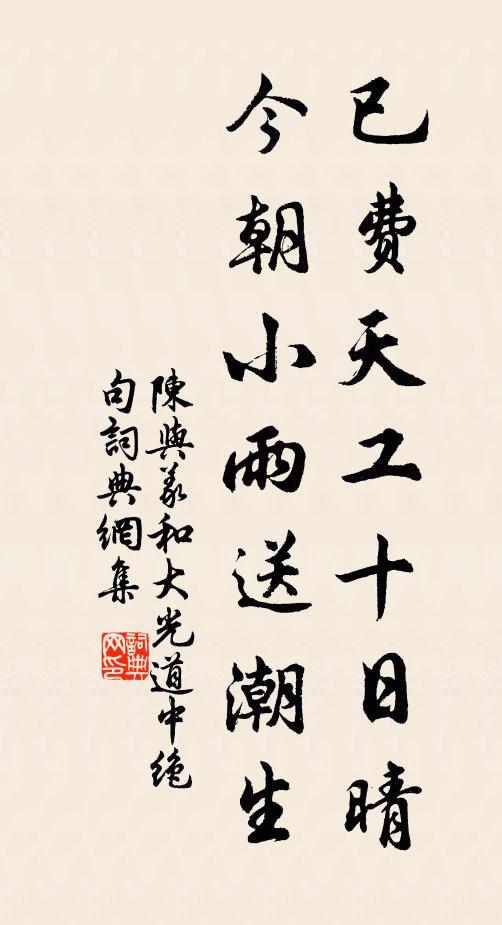 已费天工十日晴
今朝小雨送潮生
陳與義和大光道中絶
句詞典網集
詞典网印